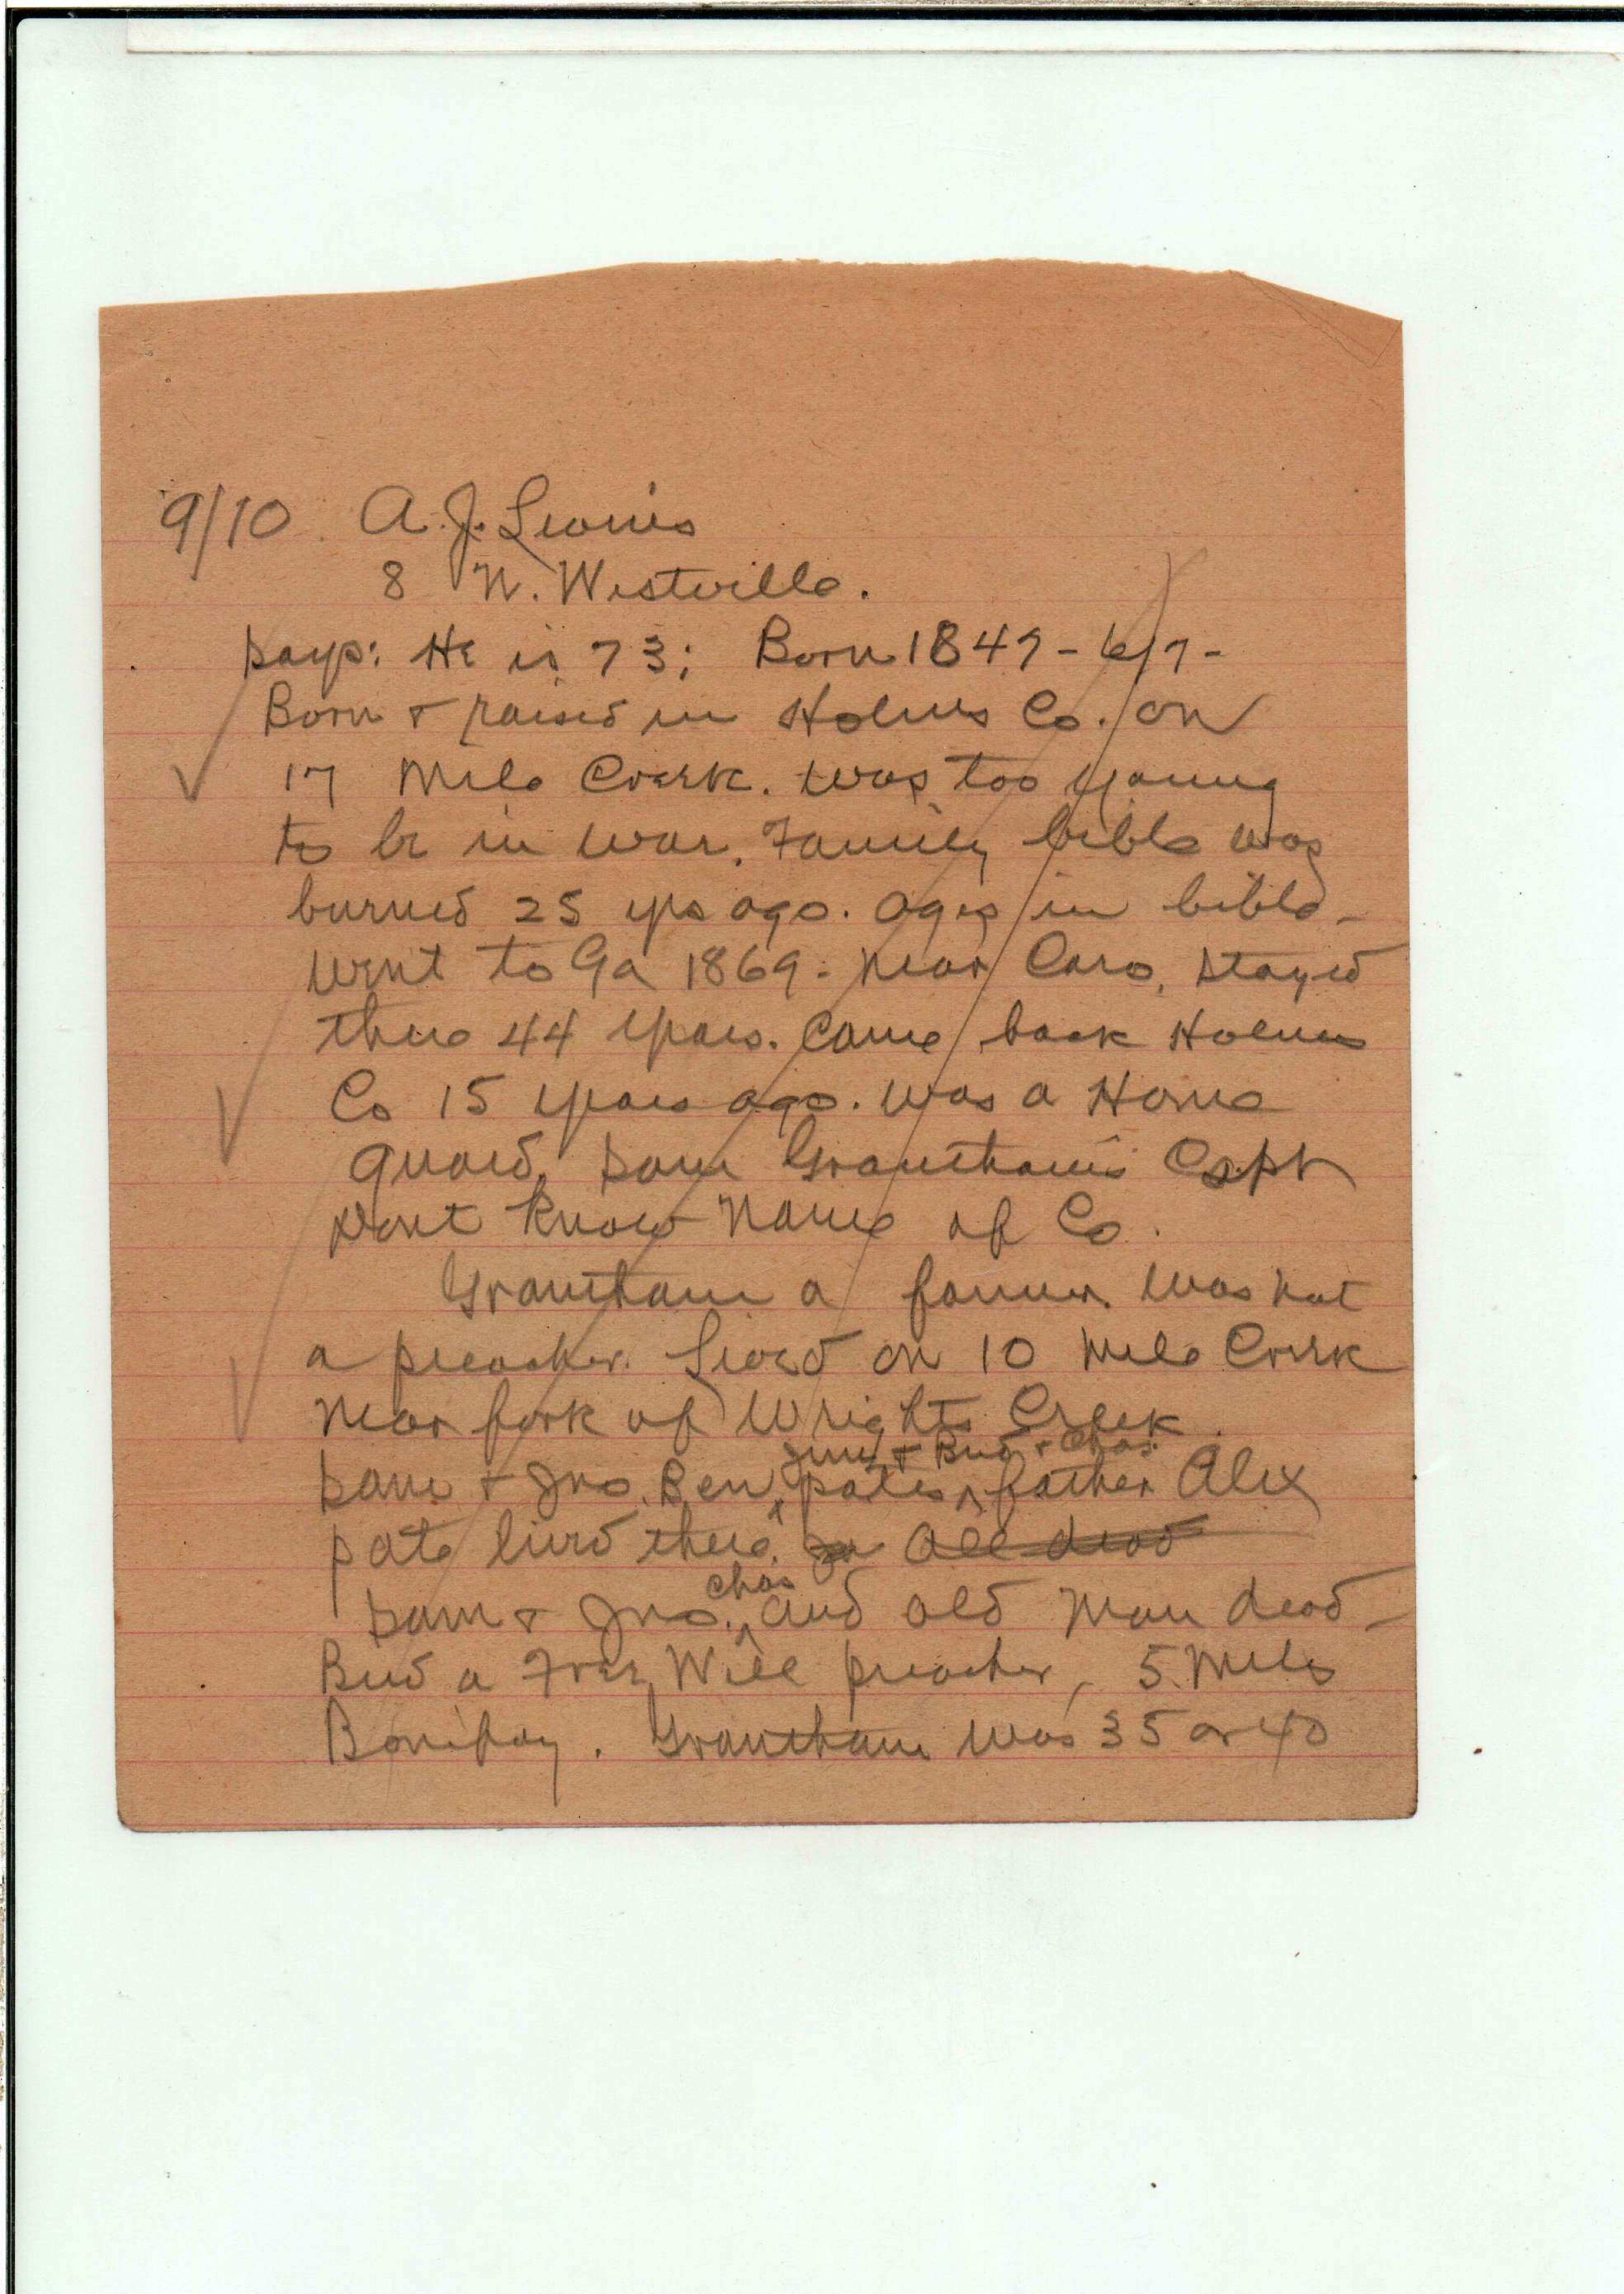 9/10 A. J. Lewis
8 N. Westville.
Says: He is 73; Born 1849 - 6/7 -
Born & raised in Holmes Co. on
17 Mile Creek. Was too young
to be in war. Family bible was
burned 25 yrs ago. Ages in bible -
Went to Ga 1869. Near Cairo, stayed
there 44 years. Came back Holmes
Co 15 years ago. Was a Home
guard, Sam Grantham's Capt
Dont know name of Co.
Grantham a farmer. Was not
a preacher. Lived on 10 Mile Creek
near fork of Wrights Creek.
Jim & Bud & Chas.
Sam & Jno. Ben, pates father Alex
pate lived there. all dead
Chas
Sam & Jno. and old man dead -
Bud a Free Will preacher, 5 Miles
Bonifay. Grantham was 35 or 40